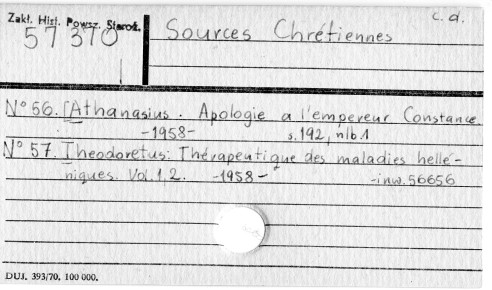 c.d.
Zakł. Hist. Powsz. Staroż.
57 370
Sources Chrétiennes
N° 56. [Athanasius. Apologie a l'empereur Constance.
-1958- s.192, nlb.1
N° 57. Theodoretus: Thérapeutique des maladies hellé-
niques. Vol. 1, 2. -1958- -inw. 56656
DUJ. 393/70, 100 000.